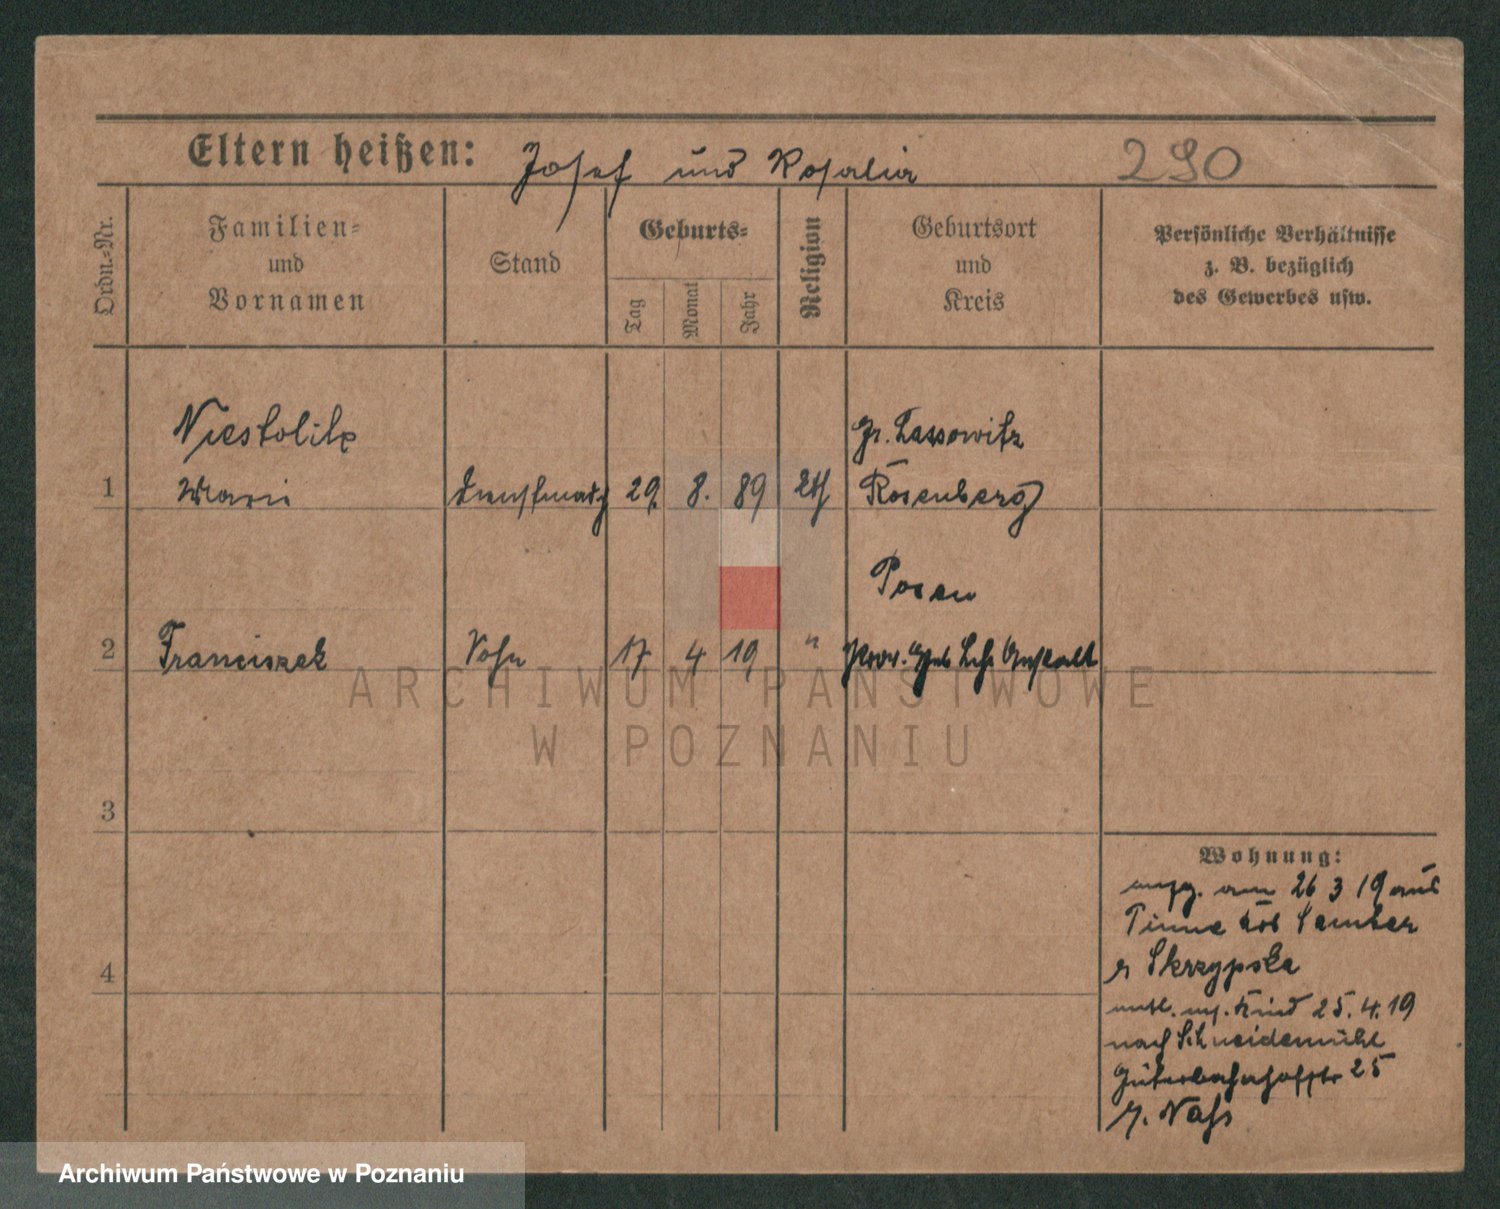 Eltern heißen: Josef und Rosalia 290
Ordn.-Nr.
Familien-
und
Vornamen
Stand
Geburts-
Tag
Monat
Jahr
Religion
Geburtsort
und
Kreis
Persönliche Verhältnisse
z. B. bezüglich
des Gewerbes usw.
Gr. Lassowitz
1 Marie Dienstmagd 29. 8. 89 Rosenberg
Posen
2 Franciszek Sohn 17 4 19 " Prov. Heb Lehr Anstalt
ARCHIWUM PAŃSTWOWE
W POZNANIU
3
4
Wohnung:
am 26 3 19 aus
Pinne
Skrzypska
Kind 25.4.19
nach Schneidemühl
Güterbahnhofstr 25
Archiwum Państwowe w Poznaniu